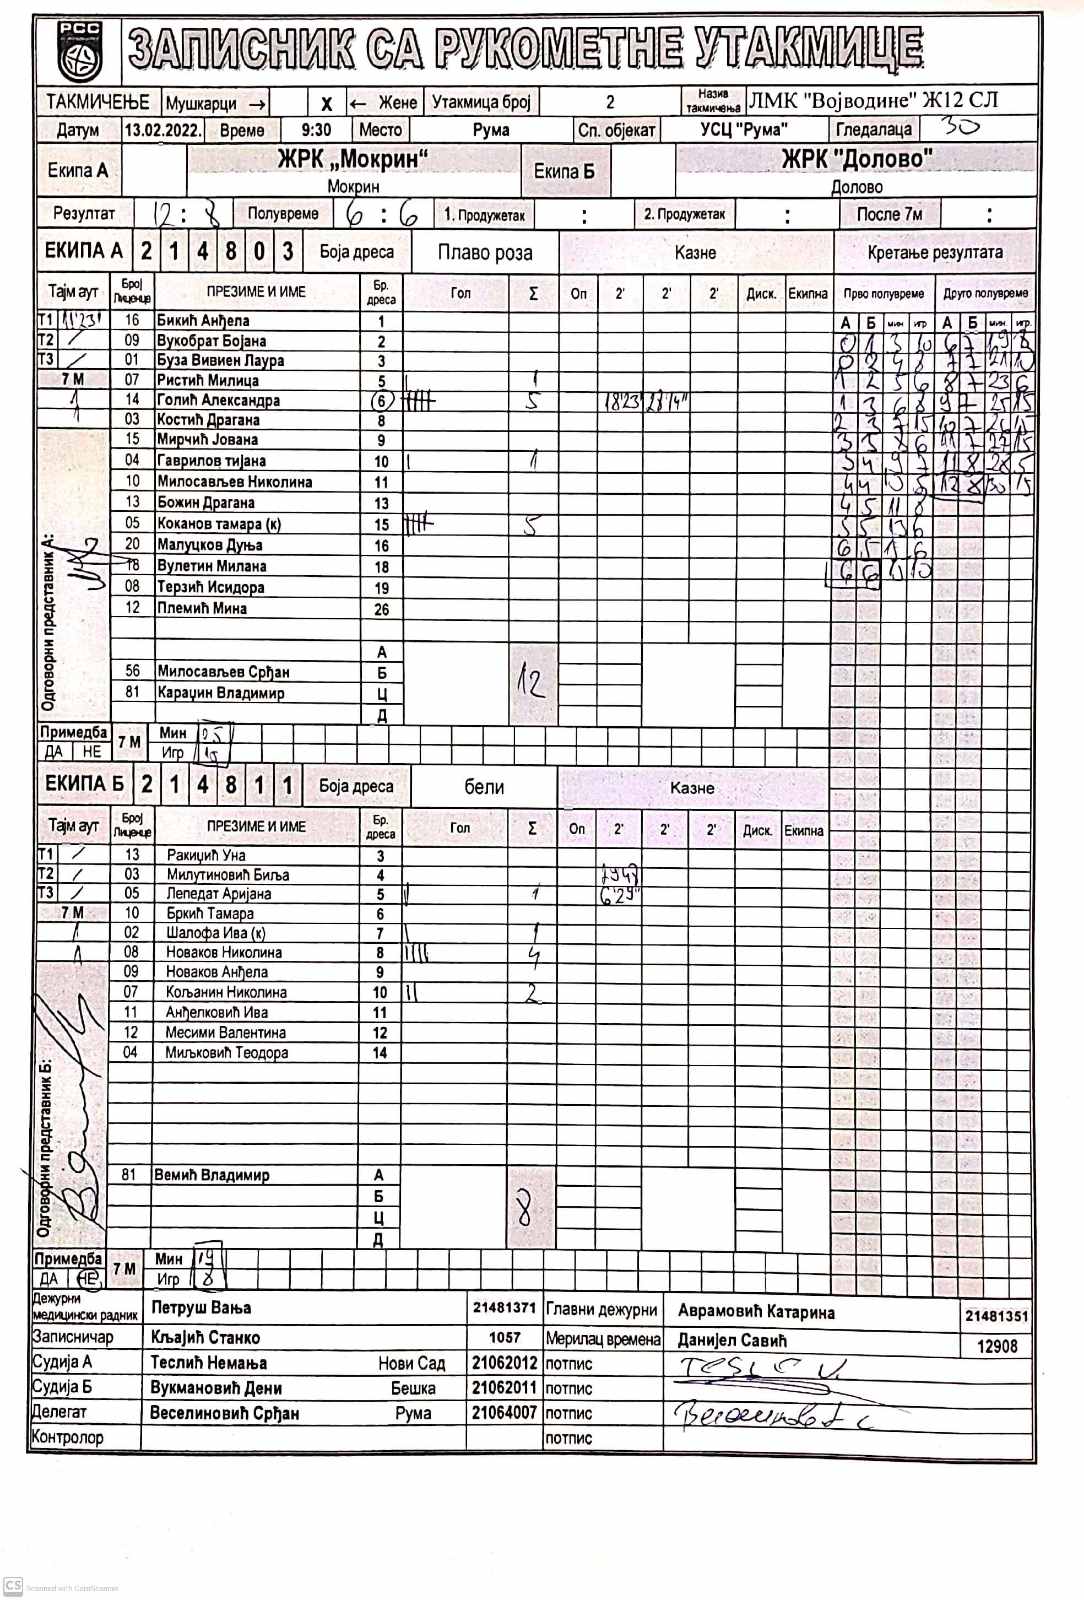 РСС
ЗАПИСНИК СА РУКОМЕТНЕ УТАКМИЦЕ
ТАКМИЧЕЊЕ Мушкарци → X ← Жене Утакмица број 2 Назив такмичења ЛМК "Војводине" Ж12 СЛ
Датум 13.02.2022. Време 9:30 Место Рума Сп. објекат УСЦ "Рума" Гледалаца 30
Екипа А ЖРК „Мокрин“ Екипа Б ЖРК "Долово"
Мокрин Долово
Резултат 12 : 8 Полувреме 6 : 6 1. Продужетак : 2. Продужетак : После 7м :
ЕКИПА А 2 1 4 8 0 3 Боја дреса Плаво роза Казне Кретање резултата
Тајм аут Број Лиценце ПРЕЗИМЕ И ИМЕ Бр. дреса Гол Σ Оп 2' 2' 2' Диск. Екипна Прво полувреме Друго полувреме
Т1 11'23' 16 Бикић Анђела 1 А Б мин игр А Б мин. игр.
Т2 / 09 Вукобрат Бојана 2 0 1 3 10 6 7 19 8
Т3 / 01 Буза Вивиен Лаура 3 0 2 4 8 7 7 21 10
7 М 07 Ристић Милица 5 | 1 1 2 5 6 8 7 23 6
1 14 Голић Александра 6 5 18'23' 28'14" 1 3 6 8 9 7 25 15
1 03 Костић Драгана 8 2 3 7 15 10 7 26 15
15 Мирчић Јована 9 3 3 8 6 11 7 27 15
04 Гаврилов тијана 10 | 1 3 4 9 7 11 8 28 5
10 Милосављев Николина 11 4 4 10 5 12 8 30 15
13 Божин Драгана 13 4 5 11 8
05 Коканов тамара (к) 15 5 5 5 13 6
20 Малуцков Дуња 16 6 5 15 6
18 Вулетин Милана 18 6 6 10
08 Терзић Исидора 19
12 Племић Мина 26
А
56 Милосављев Срђан Б 12
81 Караџин Владимир Ц
Д
Одговорни представник А:
Примедба 7 М Мин 25
ДА НЕ Игр 15
ЕКИПА Б 2 1 4 8 1 1 Боја дреса бели Казне
Тајм аут Број Лиценце ПРЕЗИМЕ И ИМЕ Бр. дреса Гол Σ Оп 2' 2' 2' Диск. Екипна
Т1 / 13 Ракиџић Уна 3
Т2 / 03 Милутиновић Биља 4 29'47
Т3 / 05 Лепедат Аријана 5 | 1 6'29"
7 М 10 Бркић Тамара 6
1 02 Шалофа Ива (к) 7 | 1
1 08 Новаков Николина 8 |||| 4
09 Новаков Анђела 9
07 Кољанин Николина 10 || 2
11 Анђелковић Ива 11
12 Месими Валентина 12
04 Миљковић Теодора 14
81 Вемић Владимир А
Б 8
Ц
Д
Одговорни представник Б:
Примедба 7 М Мин 19
ДА НЕ Игр 8
Дежурни медицински радник Петруш Вања 21481371 Главни дежурни Аврамовић Катарина 21481351
Записничар Кљајић Станко 1057 Мерилац времена Данијел Савић 12908
Судија А Теслић Немања Нови Сад 21062012 потпис
Судија Б Вукмановић Дени Бешка 21062011 потпис
Делегат Веселиновић Срђан Рума 21064007 потпис
Контролор потпис
CS Scanned with CamScanner